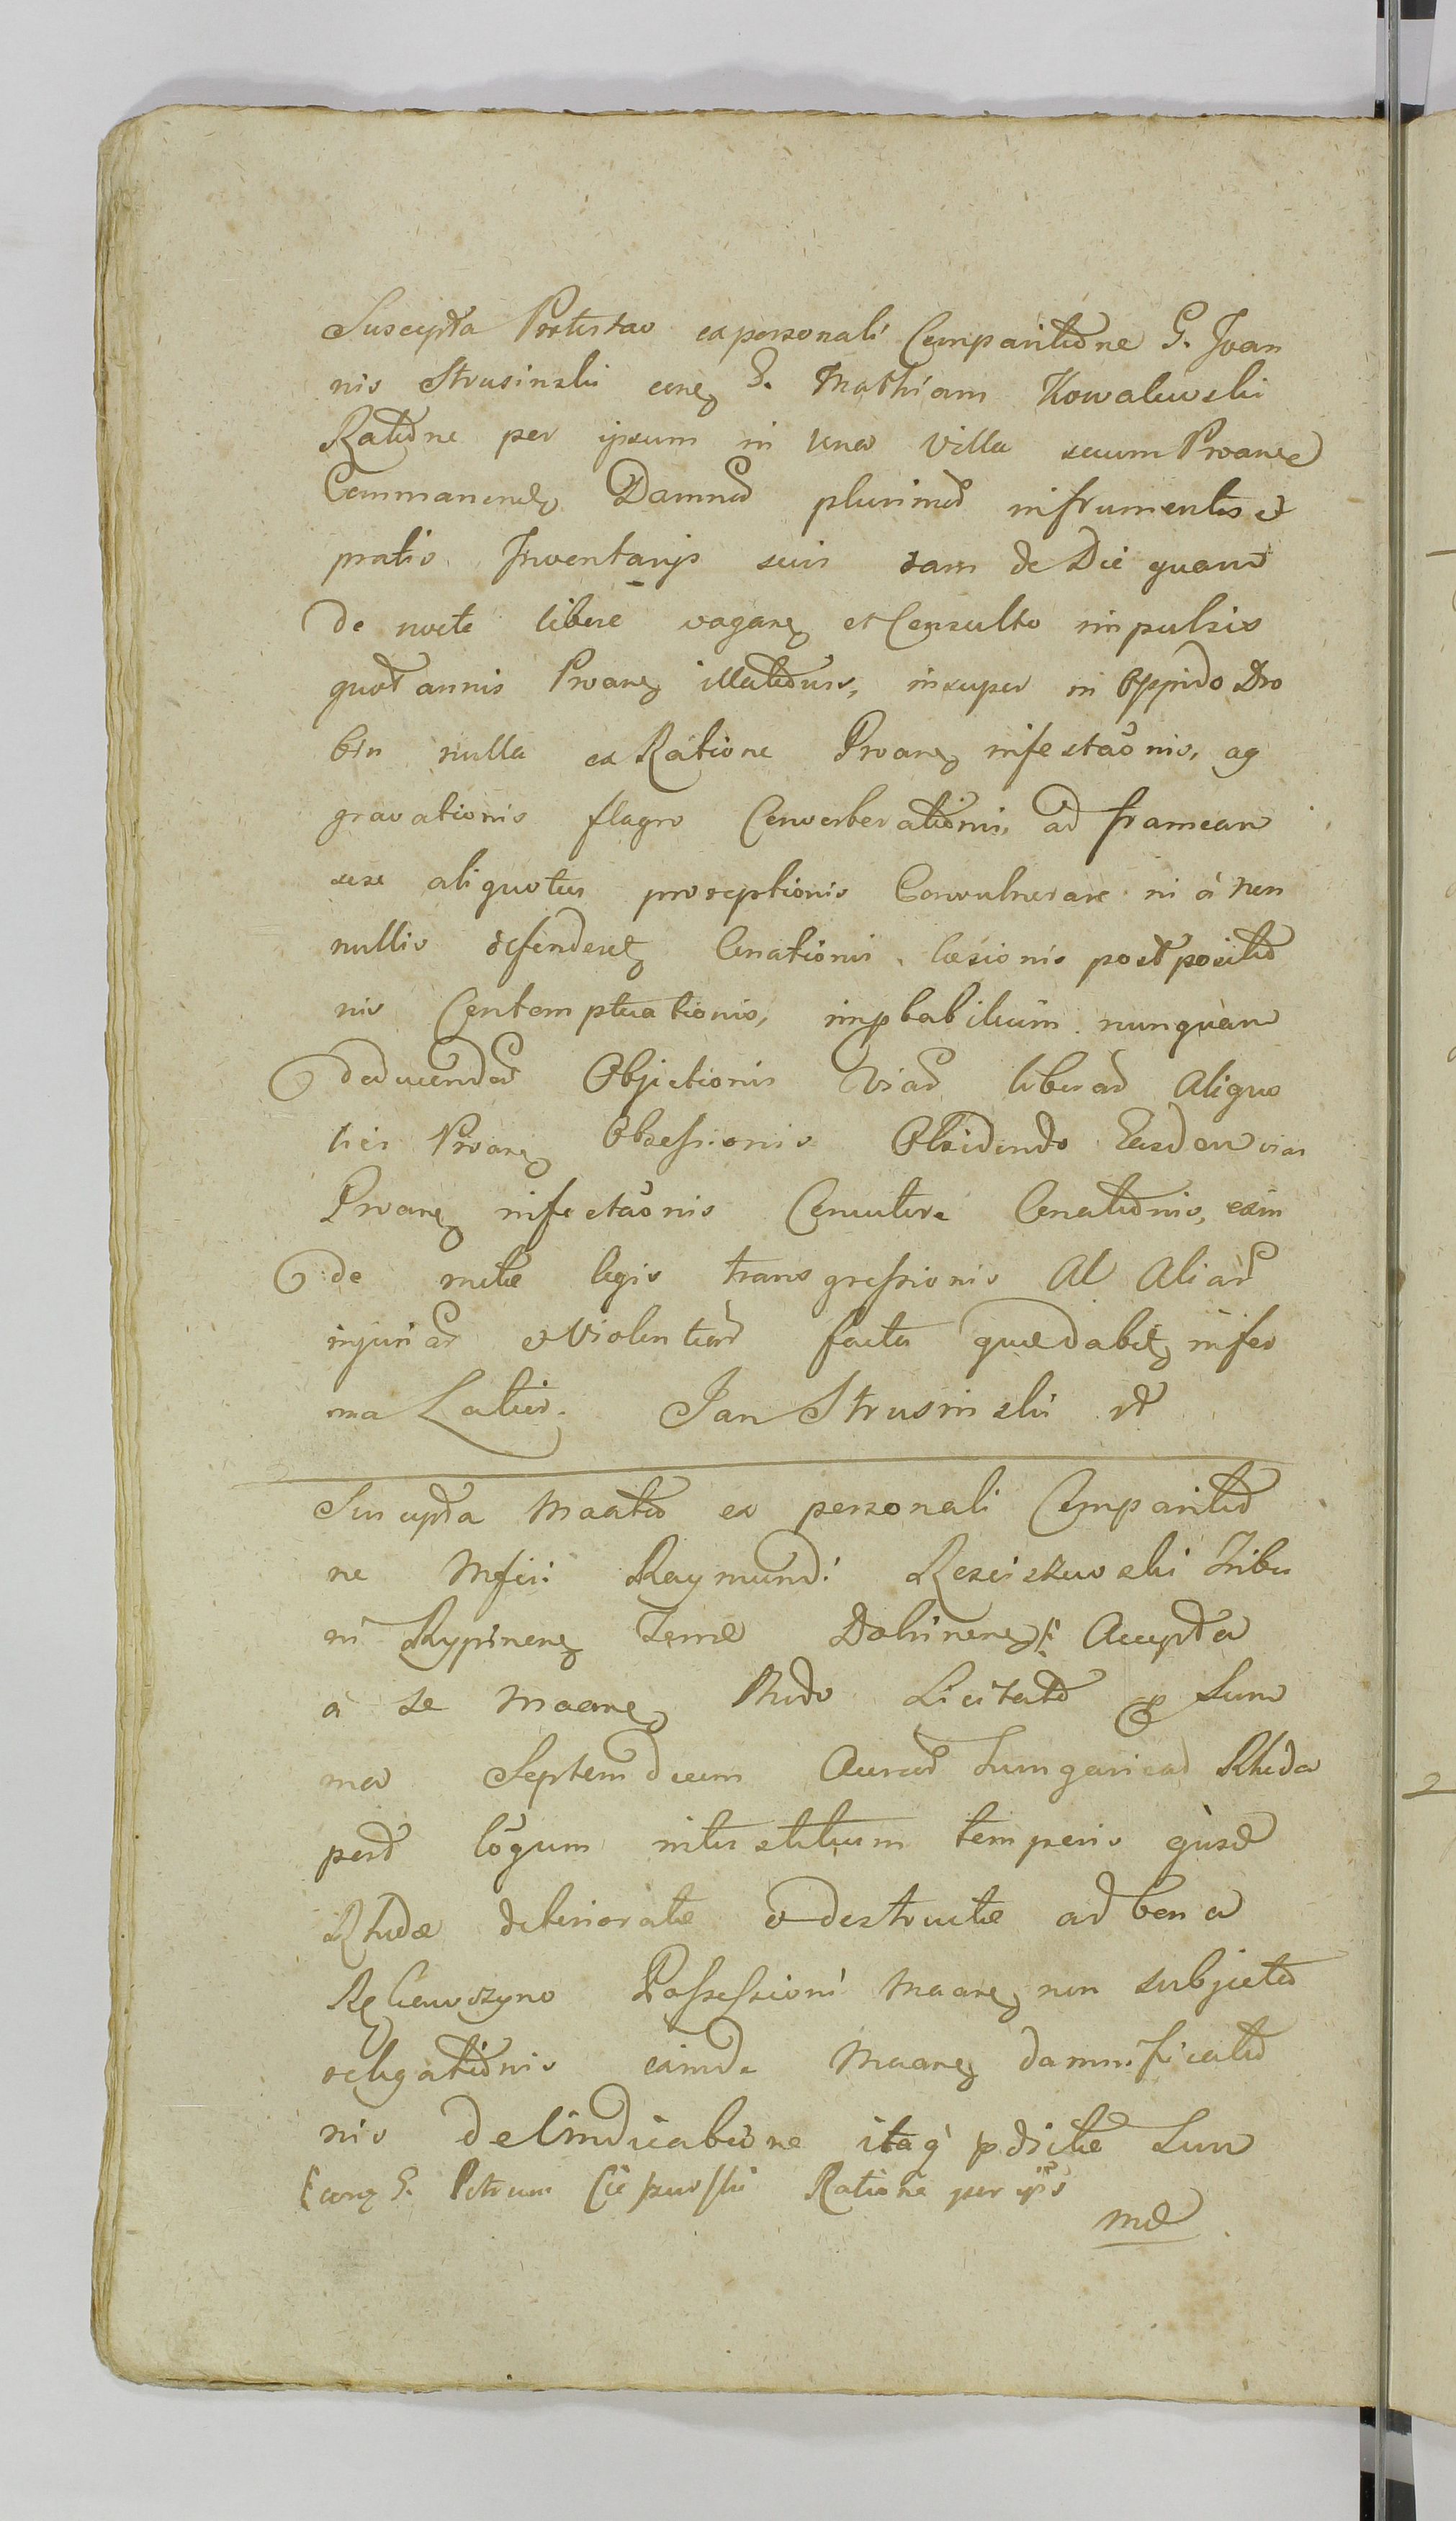 Suscepta Protestao ex personali Comparitione G. Joan
nis Strusinski cong G. Mathiam Kowalewski
Ratione per ipsum in una Villa secum Proante
Commanend Damnor plurimor in frumentis et
pratis Inventarijs suis tam de Die quam
de nocte libere vagang et Consulto impulsis
quot annis Proang illationis, insuper in Oppido Dro
bin nulla ex Ratione Proang infestaonis, ag
gravationis flagro Converberationis, ad frameam
sese aliquoties proreptionis Convulnerare ni à non
nullis defenderet Conationis, læsionis postpositio
nis Contemptuationis, improbabilium nunquam
deducendor Objectionis Viar liberar aliquo
ties Proang Obsessionis Obsidendo Easdem vias
Proang infestaonis Concutere Conationis, exin
de mltæ legis transgressionis Al Aliar
injuriar et Violentiar facta quædabit infor
ma Latior. Jan Strusinski
Suscepta Maatio ex personali Comparitio
ne Mfici Raymundi Resciszewski Tribu
ni Rypinens Terræ Dobrinens Accepta
à se Maang Rhedo Licitato p Sum
ma Septemdecim Aureor Hungaricar Rheda
perd lõgum interstitium temporis ejusd
Rhedæ deterioratæ et destructæ ad bona
Possessioni Maang non subjecta
relegationis eximde Maang damnificatio
nis delindicatione itaq pdictæ Sum
cong G. Petrum Ratione per ips
mæ